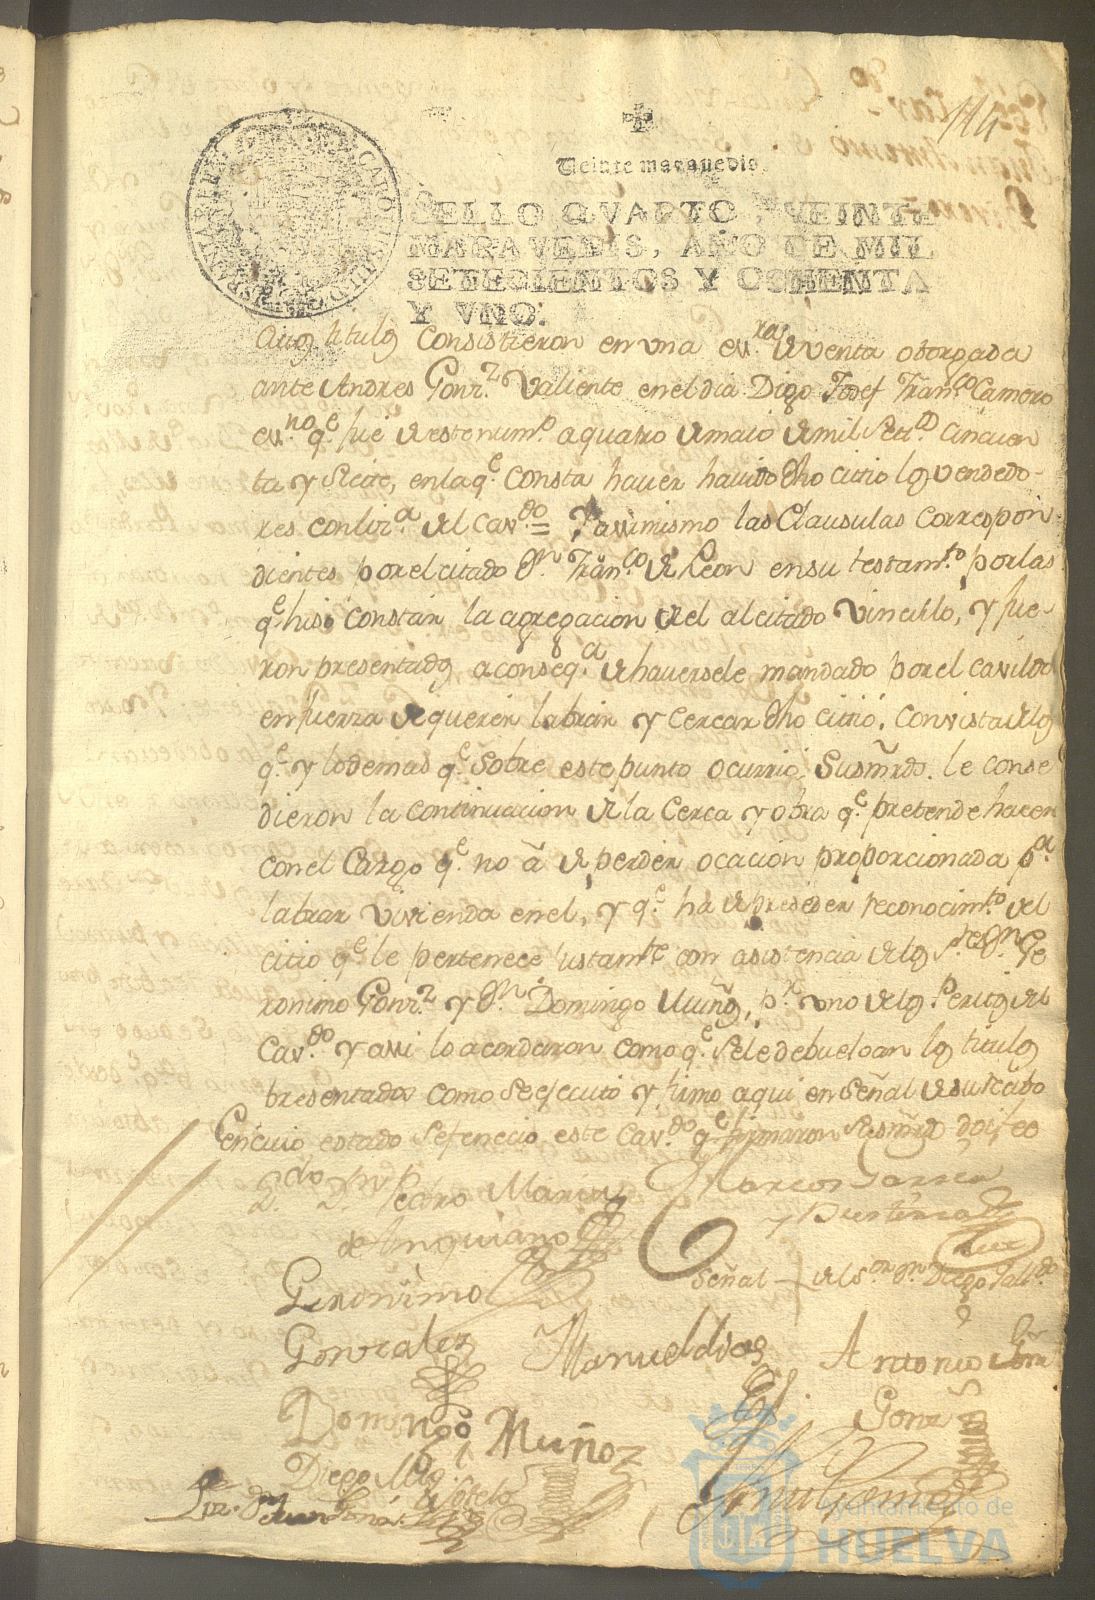 114
Veinte maravedis.
SELLO QVARTO, VEINTE
MARAVEDIS, AÑO DE MIL
SETECIENTOS Y OCHENTA
Y VNO.
cuios titulos consistieron en vna escra. de venta otorgada
ante Andres Gonz. Valiente en el dia Digo Josef Franco. Camero
esno. qe. fue de este numo. a quatro de maio de mil setts. cincuen
ta y Siete, en la qe. Consta haver havido dho citio los vendedo-
res con liza. del Cavdo. = Y asimismo las Clausulas correspon-
dientes por el citado Dn. Franco. de Leon en su testamto. por las
qe. hiso constar la agregacion de el al citado Vinculo, y fue-
ron presentados a conseqa. de haversele mandado por el cavildo
en fuerza de querer labrar y Cercar dho citio. Con vista de los
qe. y lo demas qe. Sobre este punto ocurrio, Susmrds. le conse
dieron la continuacion de la Cerca y obra qe. pretende hacer
con el Cargo qe. no â de perder ocacion proporcionada pa.
labrar vivienda en el, y qe. ha de preseder reconocimto. del
citio qe. le pertenece justamte. con asistencia de los Sres. Dn. Ge
ronimo Gonz. y Dn. Domingo Muños, pr. vno de los Peritos del
Cavdo. y assi lo acordaron como qe. Se le debuelban los titulos
presentados como se executó y firmo aqui en Señal de su recivo
En cuio estado se fenecio este Cavdo. qe. firmaron Susmrds. doi fee
Pedro Maria
de Anquiano
Marcos Garcia
y Bustamante
Señal de el Sor. Dn. Diego
Geronimo
Gonzalez
Manuel dias
Antonio
Gonz
Domingo Muñoz
Diego Mig.
de Sotelo
Ayuntamiento de
HUELVA